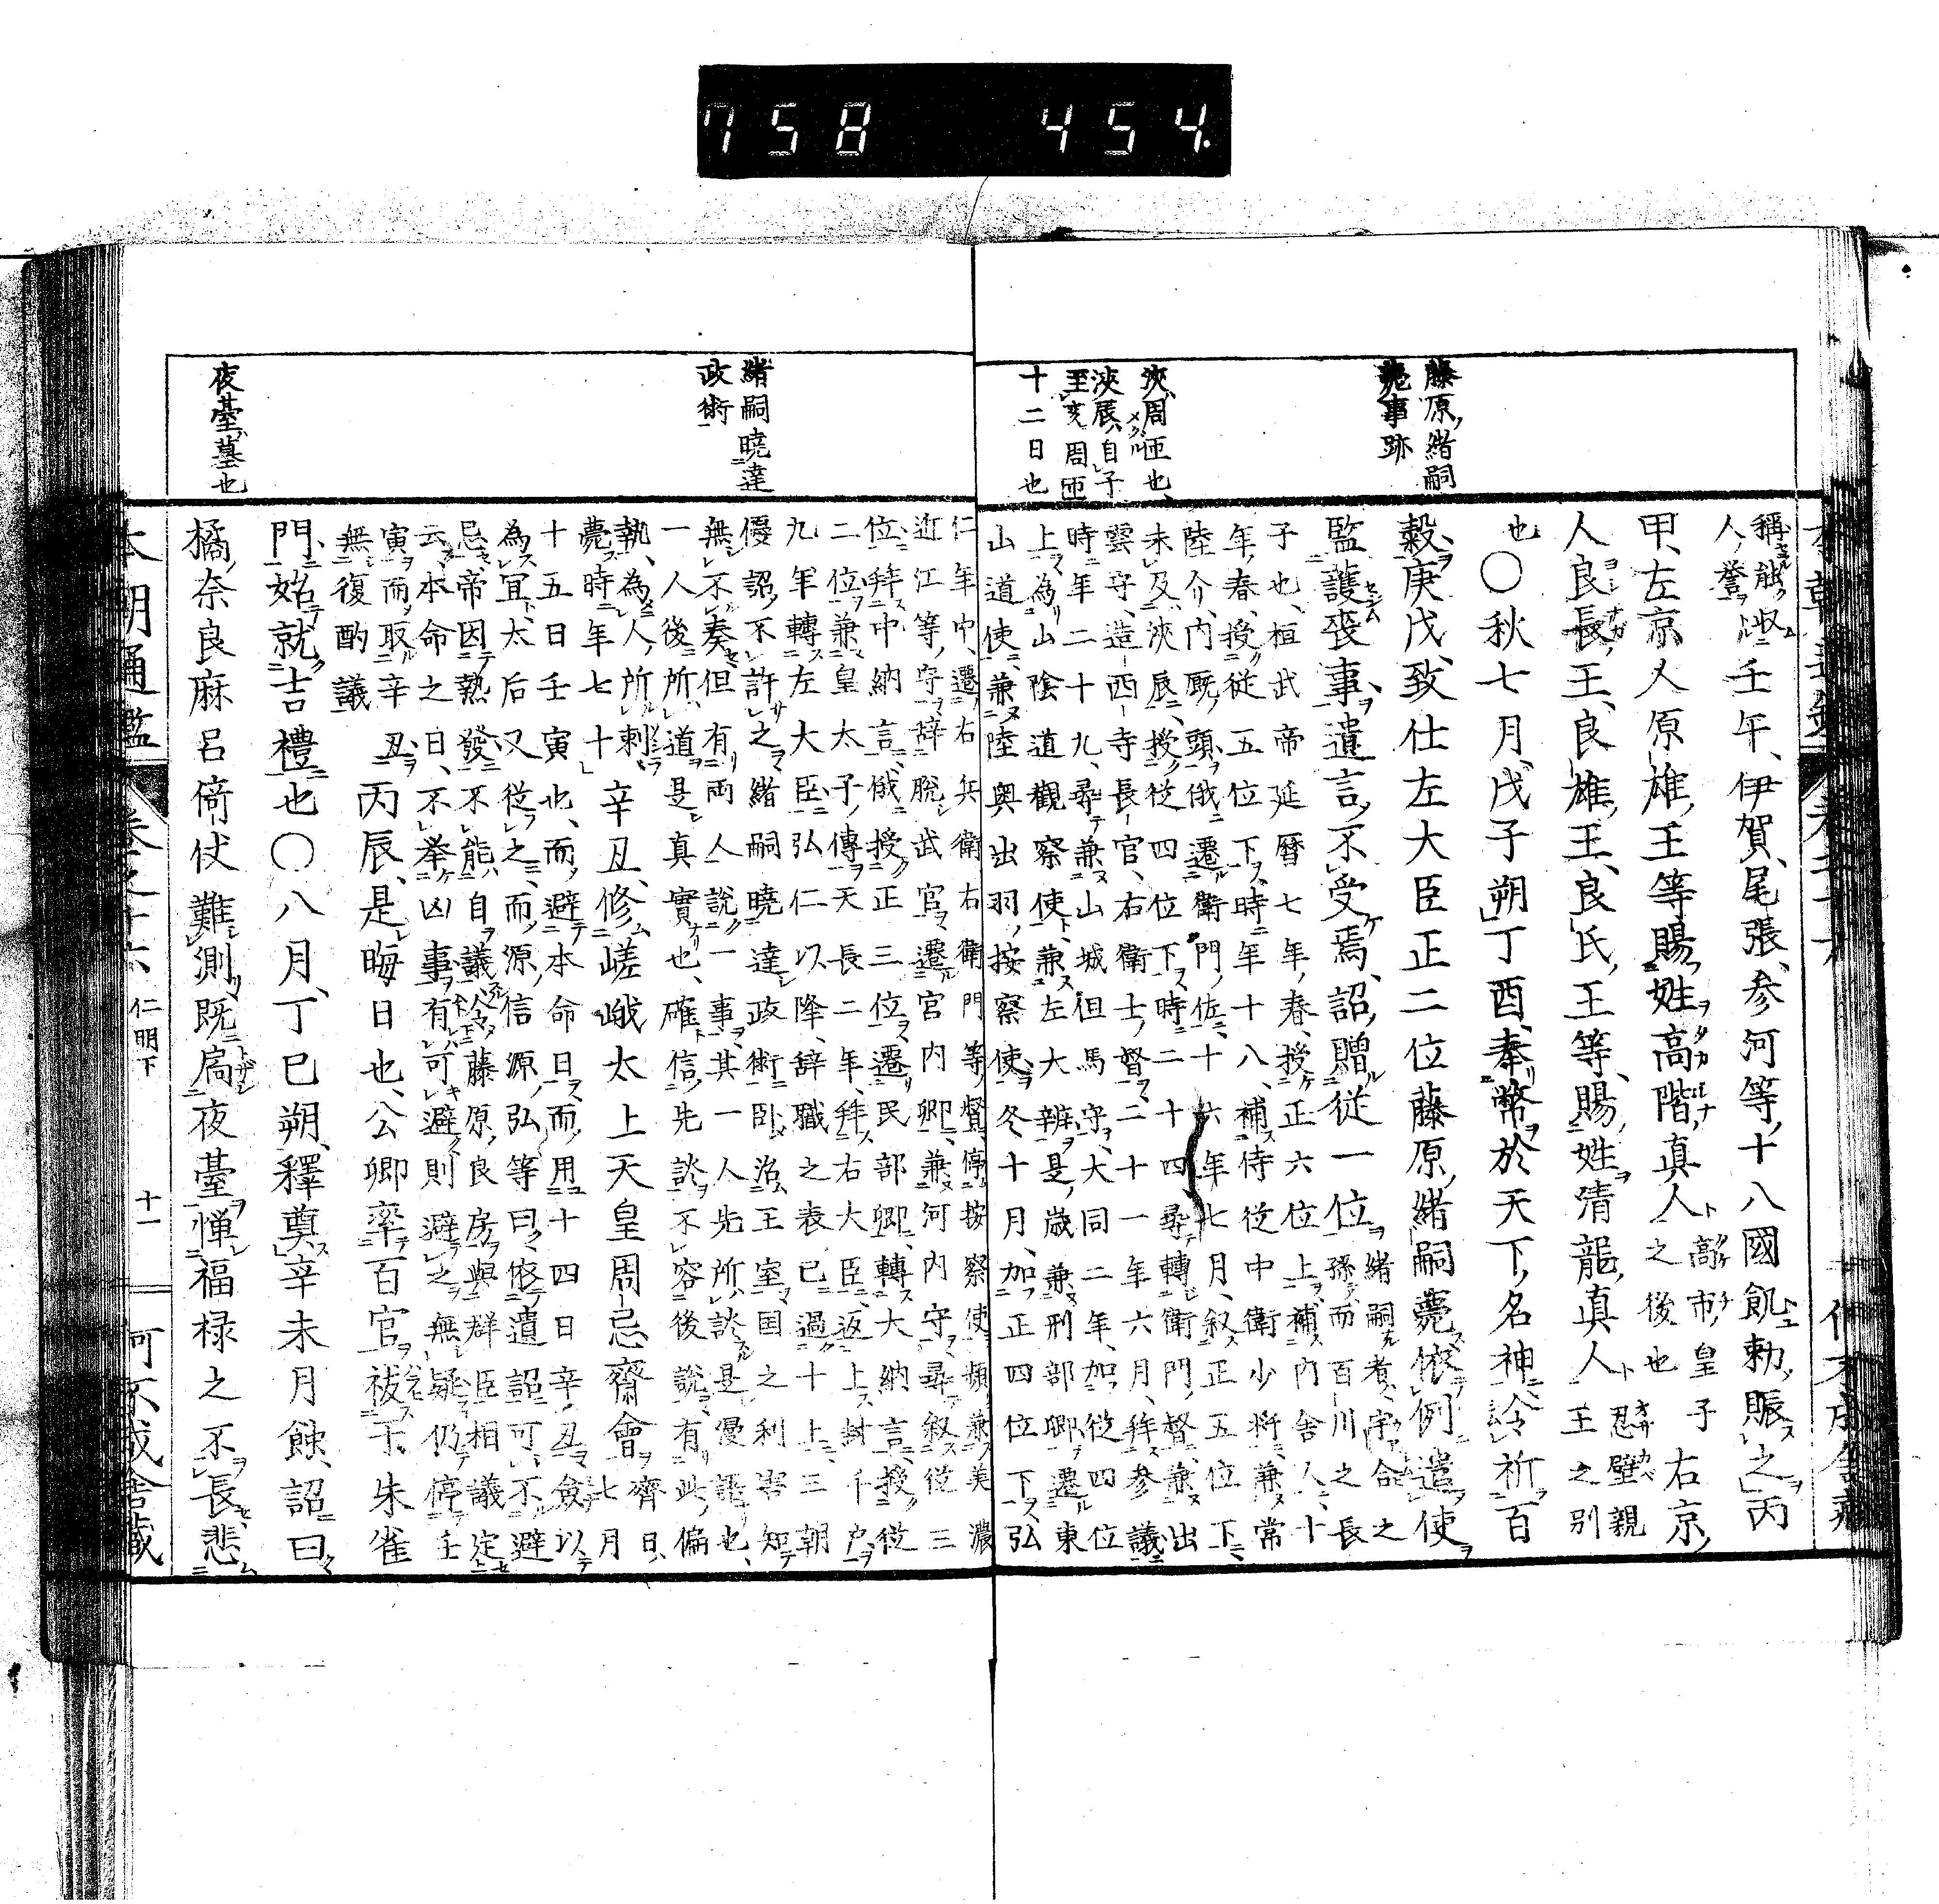 758 454.
藤原緒嗣
薨事跡
浹周匝也
浹辰自子
至亥周匝
十二日也
稱能登
人
壬午伊賀尾張参河等十八國飢勅賑之丙
甲左京人原雄王等賜姓高階真人
高市皇子
之後也
右京
人良長王良雄王良氏王等賜姓清瀧真人
忍壁親
王之別
也〇秋七月戊子朔丁酉奉幣於天下名神令祈百
穀庚戌致仕左大臣正二位藤原緒嗣薨依例遣使
監護喪事遺言不受焉詔贈従一位
緒嗣者宇合之
孫而百川之長
子也桓武帝延暦七年春授正六位上補内舎人十
年春授従五位下時年十八補侍従中衛少将兼常
陸介内厩頭俄遷衛門佐十六年七月叙正五位下
未及浹辰授従四位下時二十四尋轉衛門督兼出
雲守造西寺長官右衛士督二十一年六月拜参議
時年二十九尋兼山城但馬守大同二年加従四位
上為山陰道觀察使兼左大辨是歳兼刑部卿遷東
山道使兼陸奥出羽按察使冬十月加正四位下弘
緒嗣曉達
政術
夜臺墓也
仁年中遷右兵衛右衛門等督停按察使頻兼美濃
近江等守辞脱武官遷宮内卿兼河内守尋叙従三
位拜中納言俄授正三位遷民部卿轉大納言授従
二位兼皇太子傳天長二年拜右大臣返上封千戸
九年轉左大臣弘仁以降辞職之表已過十上三朝
優詔不許之緒嗣曉達政術臥治王室国之利害知
無不奏但有両人説一事其一人先所談是漫語也
一人後所道是真實也確信先談不容後説有此偏
執為人所刺
薨時年七十
辛丑修嵯峨太上天皇周忌齋會
齊日
七月
十五日壬寅也而避本命日而用十四日辛丑僉以
為宜太后又従之而源信源弘等曰依遺詔可不避
忌帝因熱發不能自議令藤原良房與群臣相議定
云本命之日不挙凶事有可避則避之無疑仍停壬
寅而取辛丑
無復酌議
丙辰是晦日也公卿率百官祓于朱雀
門始就吉禮也〇八月丁巳朔釋奠辛未月蝕詔曰
橘奈良麻呂倚伏難測既扃夜臺憚福禄之不長悲
本朝通鑑 卷之十六 仁明下 十一